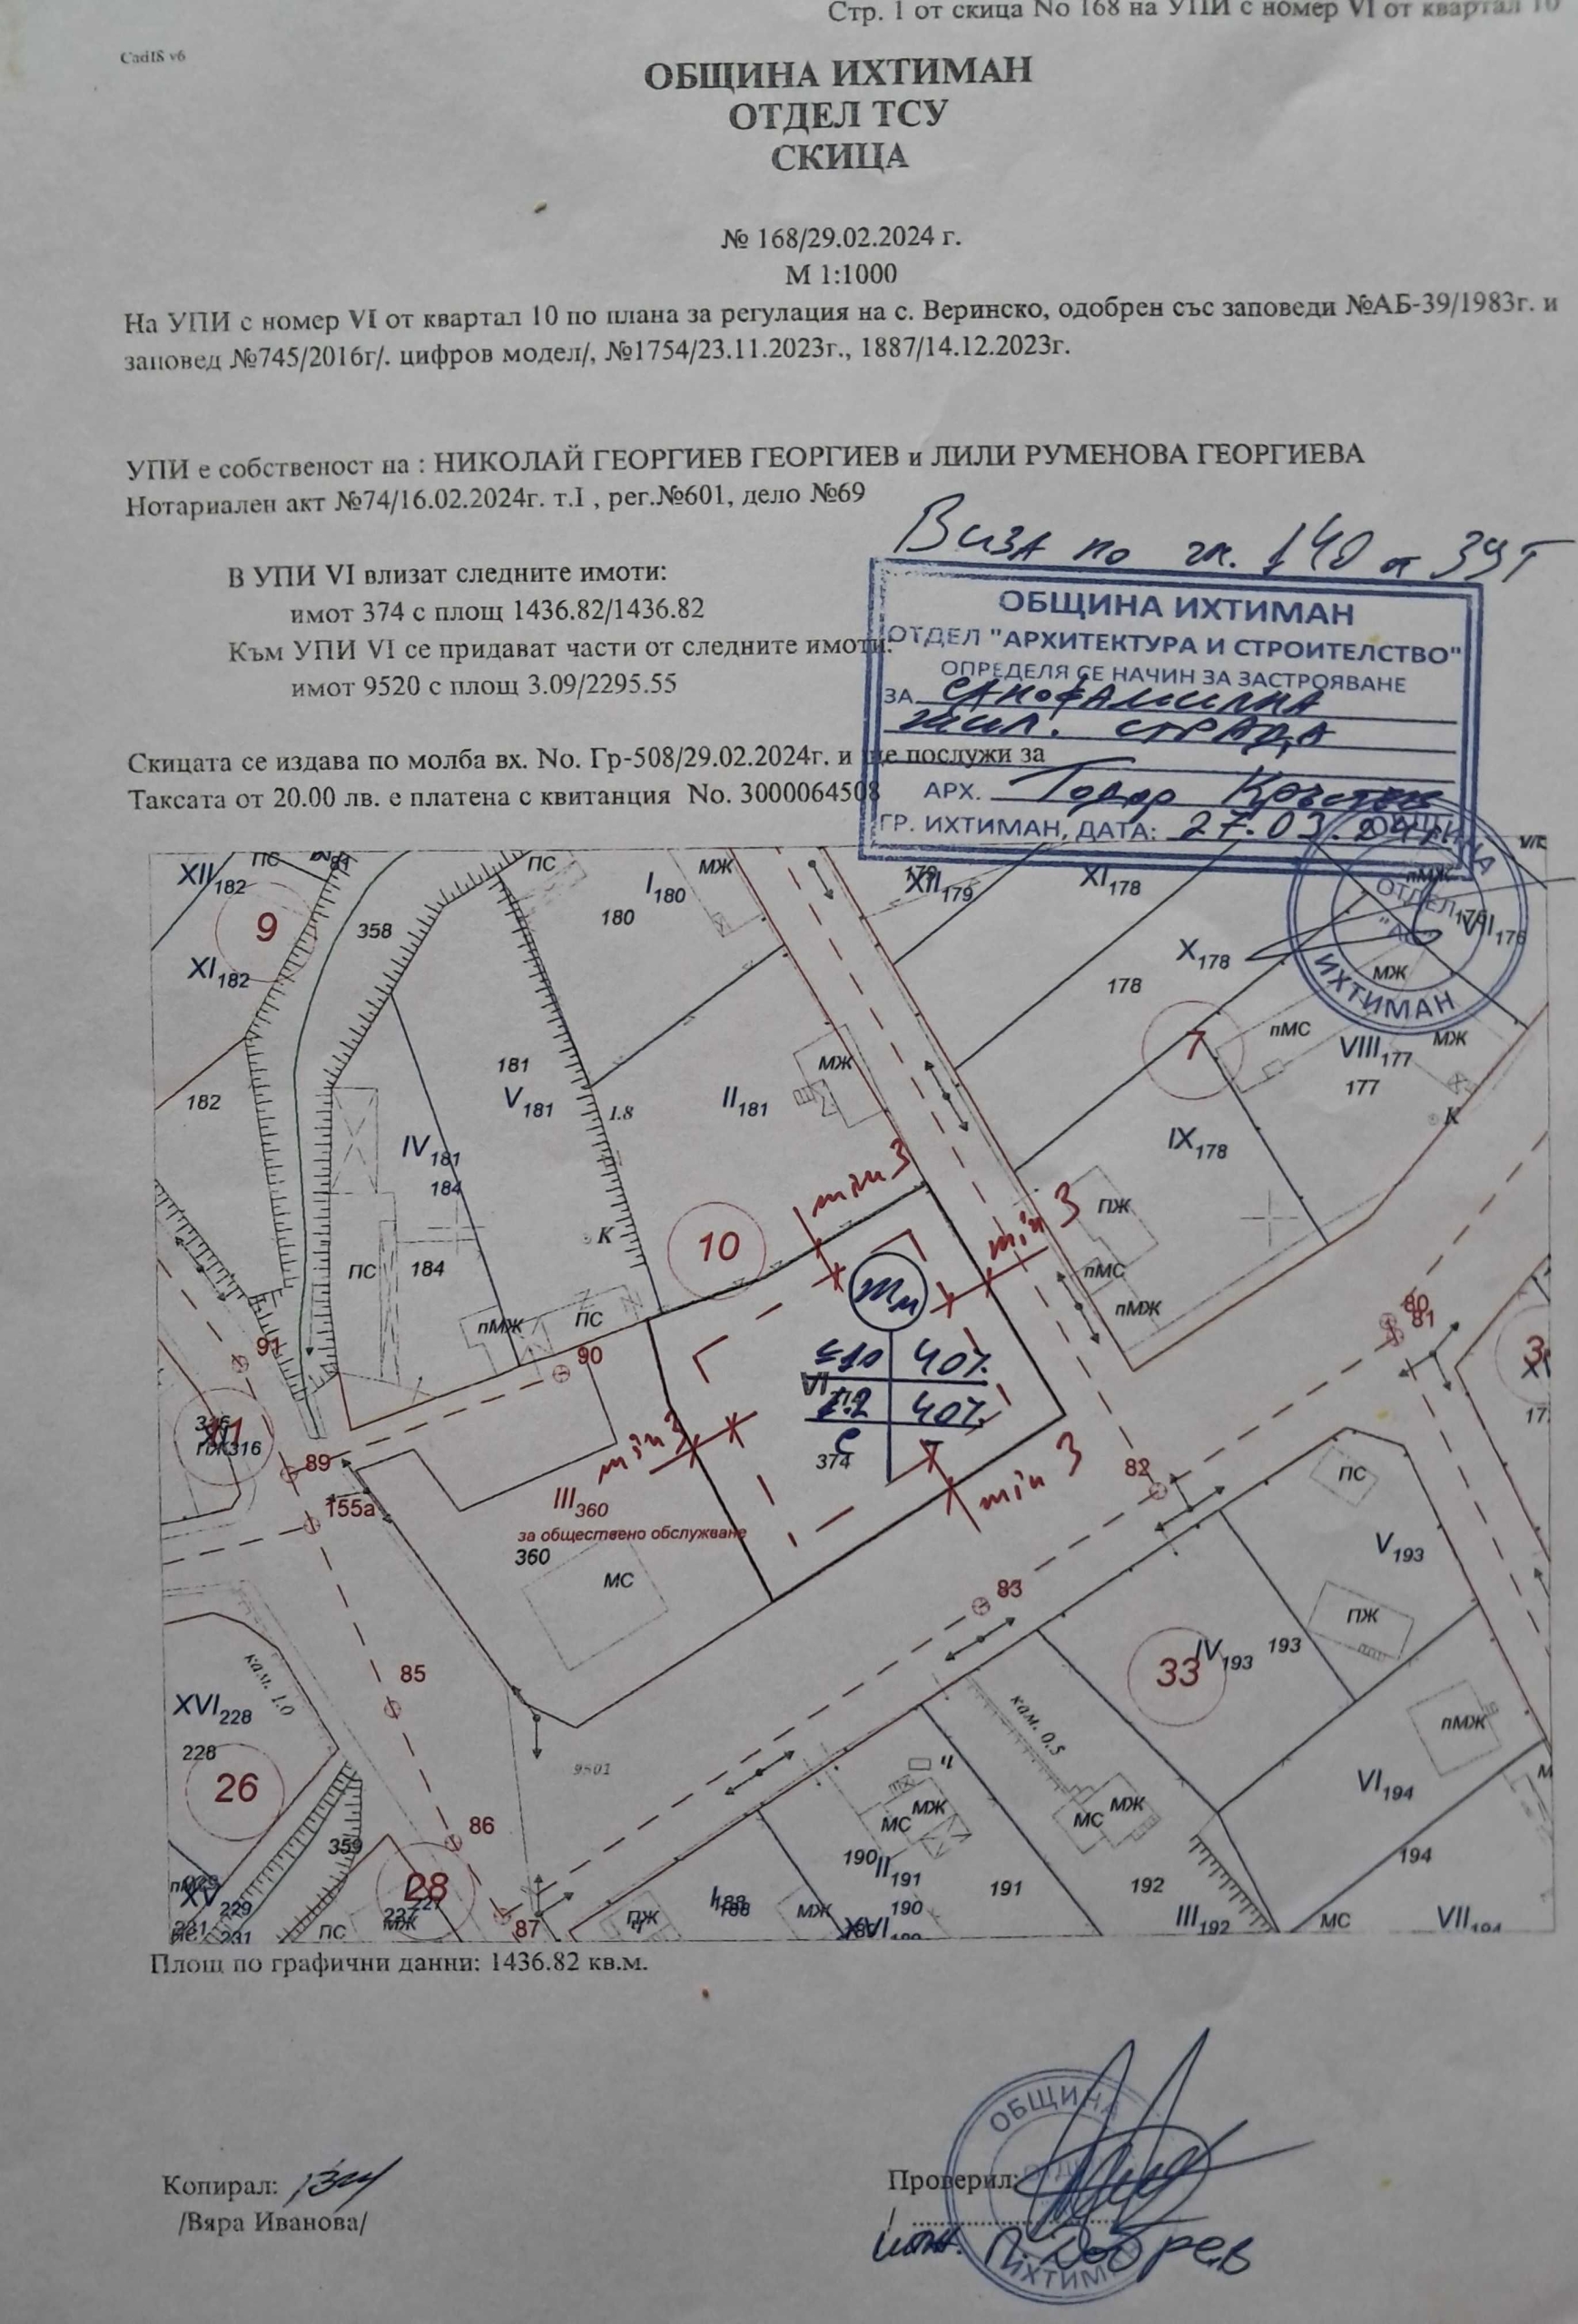 Стр. 1 от скица No 168 на УПИ с номер VI от квартал 10
CadIS v6
ОБЩИНА ИХТИМАН
ОТДЕЛ ТСУ
СКИЦА
№ 168/29.02.2024 г.
М 1:1000
На УПИ с номер VI от квартал 10 по плана за регулация на с. Веринско, одобрен със заповеди №АБ-39/1983г. и
заповед №745/2016г/. цифров модел/, №1754/23.11.2023г., 1887/14.12.2023г.
УПИ е собственост на : НИКОЛАЙ ГЕОРГИЕВ ГЕОРГИЕВ и ЛИЛИ РУМЕНОВА ГЕОРГИЕВА
Нотариален акт №74/16.02.2024г. т.I , рег.№601, дело №69
Виза по чл. 140 от ЗУТ
В УПИ VI влизат следните имоти:
имот 374 с площ 1436.82/1436.82
Към УПИ VI се придават части от следните имоти:
имот 9520 с площ 3.09/2295.55
ОБЩИНА ИХТИМАН
ОТДЕЛ "АРХИТЕКТУРА И СТРОИТЕЛСТВО"
ОПРЕДЕЛЯ СЕ НАЧИН ЗА ЗАСТРОЯВАНЕ
ЗА еднофамилна
жил. сграда
АРХ. Тодор Кръстев
ГР. ИХТИМАН, ДАТА: 27.03.24г.
Скицата се издава по молба вх. No. Гр-508/29.02.2024г. и ще послужи за
Таксата от 20.00 лв. е платена с квитанция No. 3000064508
ОБЩИНА
ОТДЕЛ
"АС"
ИХТИМАН
XII182
ПС
81
ПС
I180
МЖ
XII179
XI178
пМЖ
9
358
180
176
VII176
XI182
X178
МЖ
178
7
пМС
VIII177
МЖ
181
МЖ
177
182
V181
1.8
II181
К
IV181
IX178
184
min 3
min 3
ПЖ
К
10
ПС
184
пМС
Жм
пМЖ
80
81
пМЖ
ПС
91
90
≤10 40%
3
XI
VI
1.2 40%
17
316
XI
ПЖ316
с
374
min 3
min 3
89
82
ПС
155а
III360
за обществено обслужване
360
V193
МС
83
ПЖ
33
IV193
193
кам. 1.0
85
XVI228
кам. 0.5
пМЖ
228
9501
26
Ч
VI194
М
МЖ
МС
МЖ
МС
86
359
190
II191
194
28
191
192
XV
229
227
227
МЖ
I188
188
190
231
231
ПС
87
ПЖ
МЖ
XVI
III192
МС
VII194
Площ по графични данни: 1436.82 кв.м.
Копирал:
/Вяра Иванова/
Проверил:
/
инж. П. Добрев
ОБЩИНА
ИХТИМАН